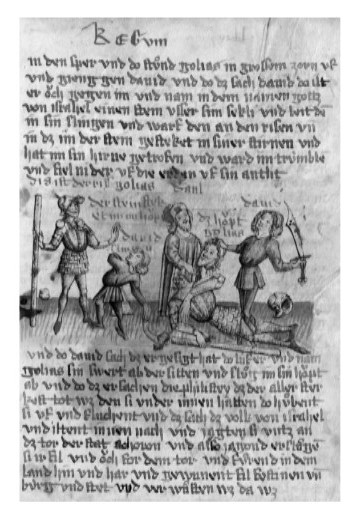 in den sper vnd do stůnd golias in grossem zorn vf
vnd gieng gen dauid vnd do dz sach dauid do ilt
er och gegen im vnd nam in dem namen gottz
von israhel einen stein vsser sim sekly vnd leit in
in sin slingen vnd warf den an den risen vn
in dz im der stein gesteket in siner stirnen vnd
hat im sin hirne getrofen vnd ward im trümble
vnd fiel nider vf die erden vf sin antlit
dis ist der ris golias
der stein stekt
dauid
dauid
dz hopt
golias
vnd do dauid sach dz er gesigt hat do lief er vnd nam
golias sin swert ab der sitten vnd slůg im sin höpt
ab vnd do dz ersachen die philistey dz der aller ster
kost tot wz den si vnder innen hatten do hůbent
si vf vnd fluchent vnd dz sach dz volk von israhel
vnd iltent innen nach vnd iagten si vntz an
dz tor der stat achoron vnd also iagend erslůgē
si ir fil vnd och for dem tor vnd in dem
land hin vnd har vnd gewunent fil festinen vn
bürg vnd stet vnd verwůsten wz da wz